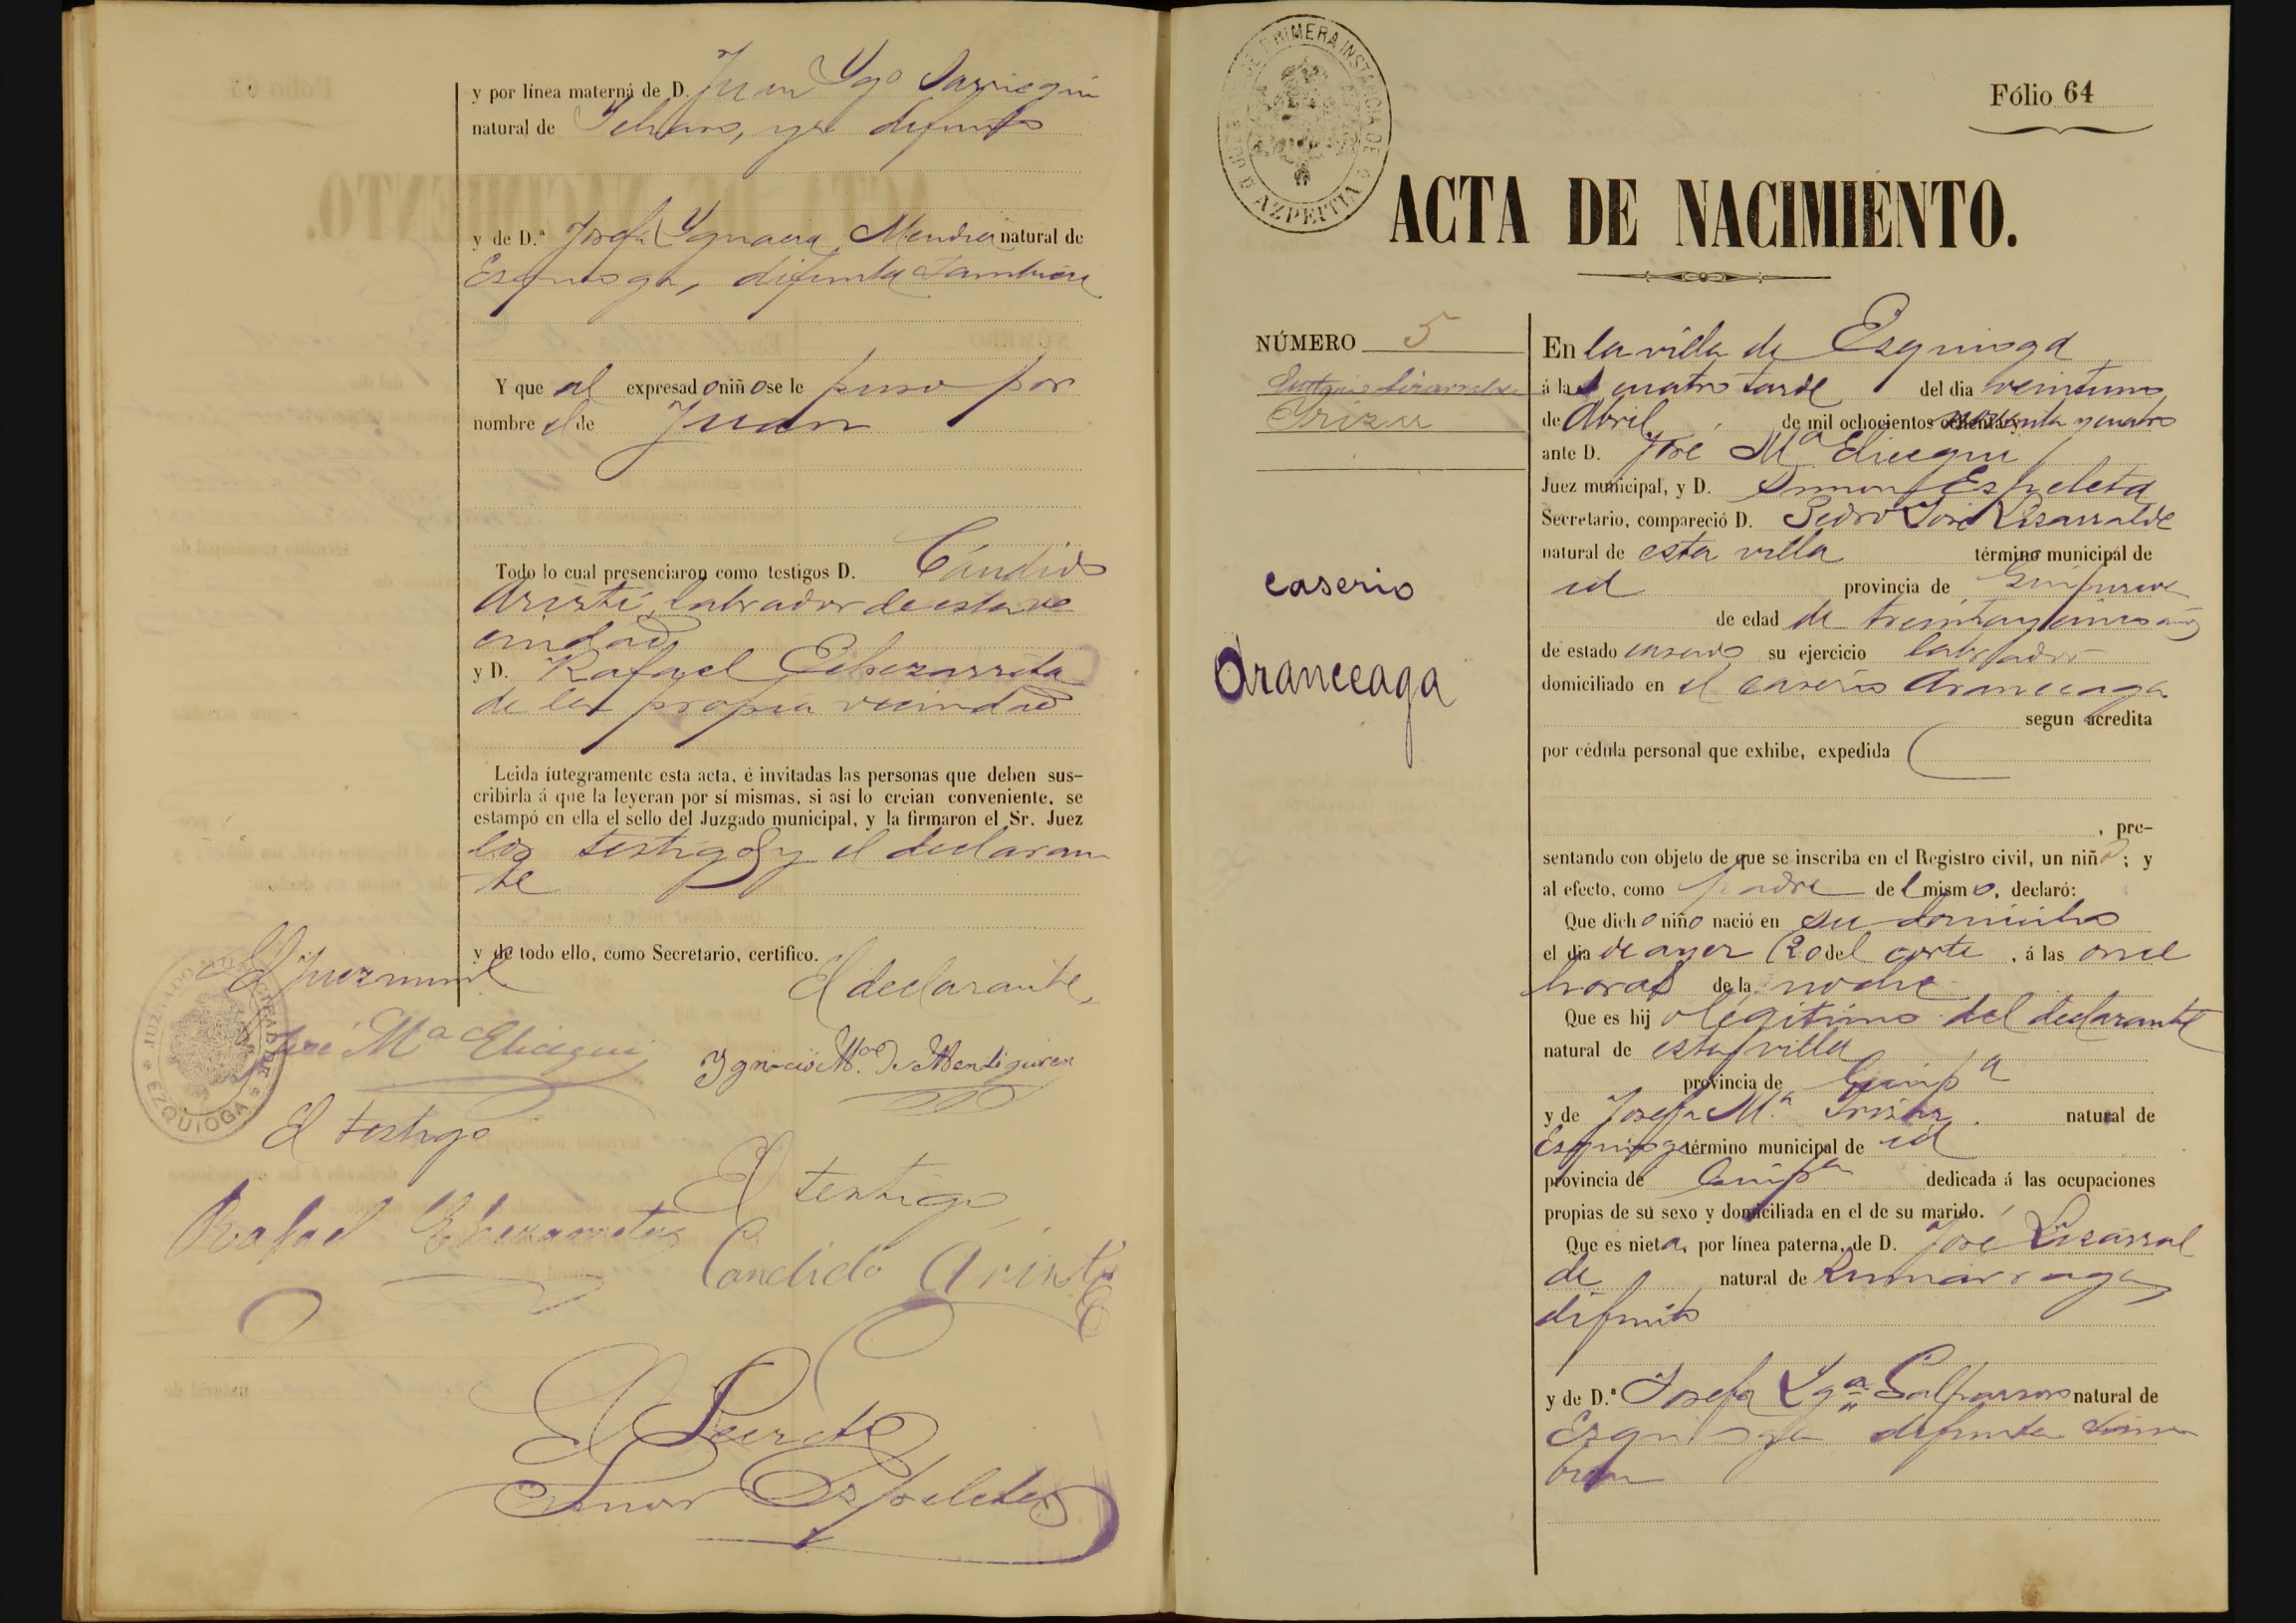 y por línea materna de D. Juan Ygº Sarriegui
natural de Ichaso, ya difunto
y de D.ª Josefa Ygnacia Mendia natural de
Esquioga, difunta tambien
Y que al expresado niño se le puso por
nombre el de Juan
Todo lo cual presenciaron como testigos D. Cándido
Aristi, labrador de esta ve
cindad
y D. Rafael Echezarreta
de la propia vecindad
Leida íutegramente esta acta, é invitadas las personas que deben sus-
cribirla á que la leyeran por sí mismas, si asi lo creian conveniente, se
estampó en ella el sello del Juzgado municipal, y la firmaron el Sr. Juez
los testigos y el declaran
te
y de todo ello, como Secretario, certifico.
El Juez munl
El declarante,
José Mª Elicegui
Ygnacio Mª de Mendiguren
JUZGADO MUNICIPAL DE EZQUIOGA
El testigo
El testigo
Rafael Echezarreta
Candido Aristi
El Secretº
Simon Espeleta
JUZGADO DE PRIMERA INSTANCIA DE AZPEITIA
Fólio 64
ACTA DE NACIMIENTO.
NÚMERO 5
Lizarralde
Irizar
caserio
Aranceaga
En la villa de Esquioga
á las cuatro tarde del dia veintiuno
de Abril de mil ochocientos ochenta y noventa y cuatro
ante D. José Mª Elicegui
Juez municipal, y D. Simon Espeleta
Secretario, compareció D. Pedro José Lizarralde
natural de esta villa término municipal de
id provincia de Guipuzcoa
de edad de treinta y cinco años
de estado casado su ejercicio labrador
domiciliado en el caserio Aranceaga
segun acredita
por cédula personal que exhibe, expedida
, pre-
sentando con objeto de que se inscriba en el Registro civil, un niño; y
al efecto, como padre del mismo, declaró:
Que dicho niño nació en su domicilio
el dia de ayer 20 del corte, á las once
horas de la noche
Que es hijo legitimo del declarante
natural de esta villa
provincia de Guipª
y de Josefa Mª Irizar natural de
Esquioga término municipal de id
provincia de Guipª dedicada á las ocupaciones
propias de su sexo y domiciliada en el de su marido.
Que es nieta, por línea paterna, de D. José Lizarral
de natural de Zumarraga
difunto
y de D.ª Josefa Ygª Galparsoro natural de
Ezquioga difunta tam
bien